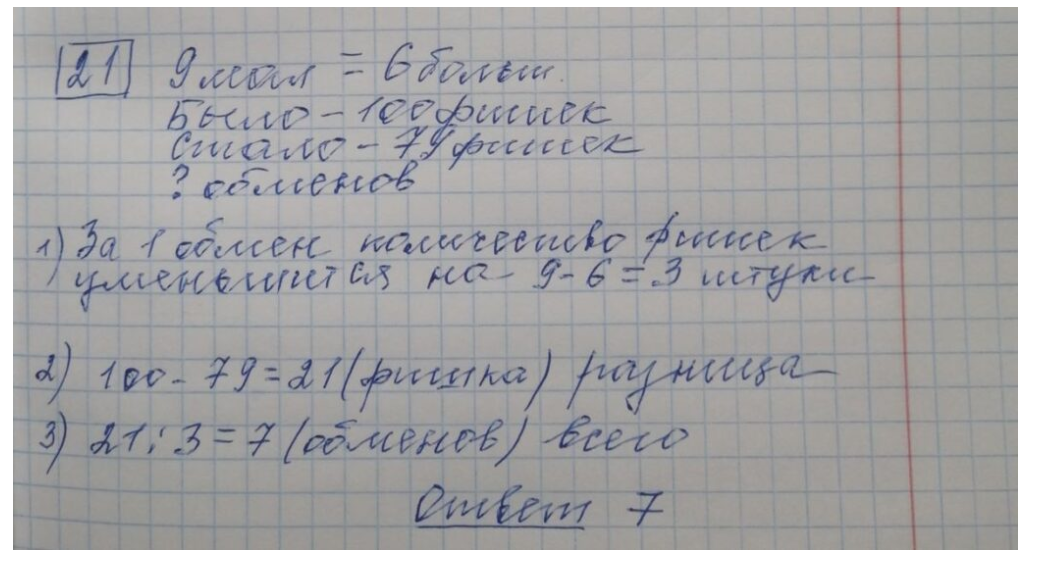 21 9 мал = 6 больш.
Было - 100 фишек
Стало - 79 фишек
? обменов
1) За 1 обмен количество фишек
уменьшится на 9-6=3 штуки
2) 100-79=21 (фишка) разница
3) 21:3=7 (обменов) всего
Ответ 7